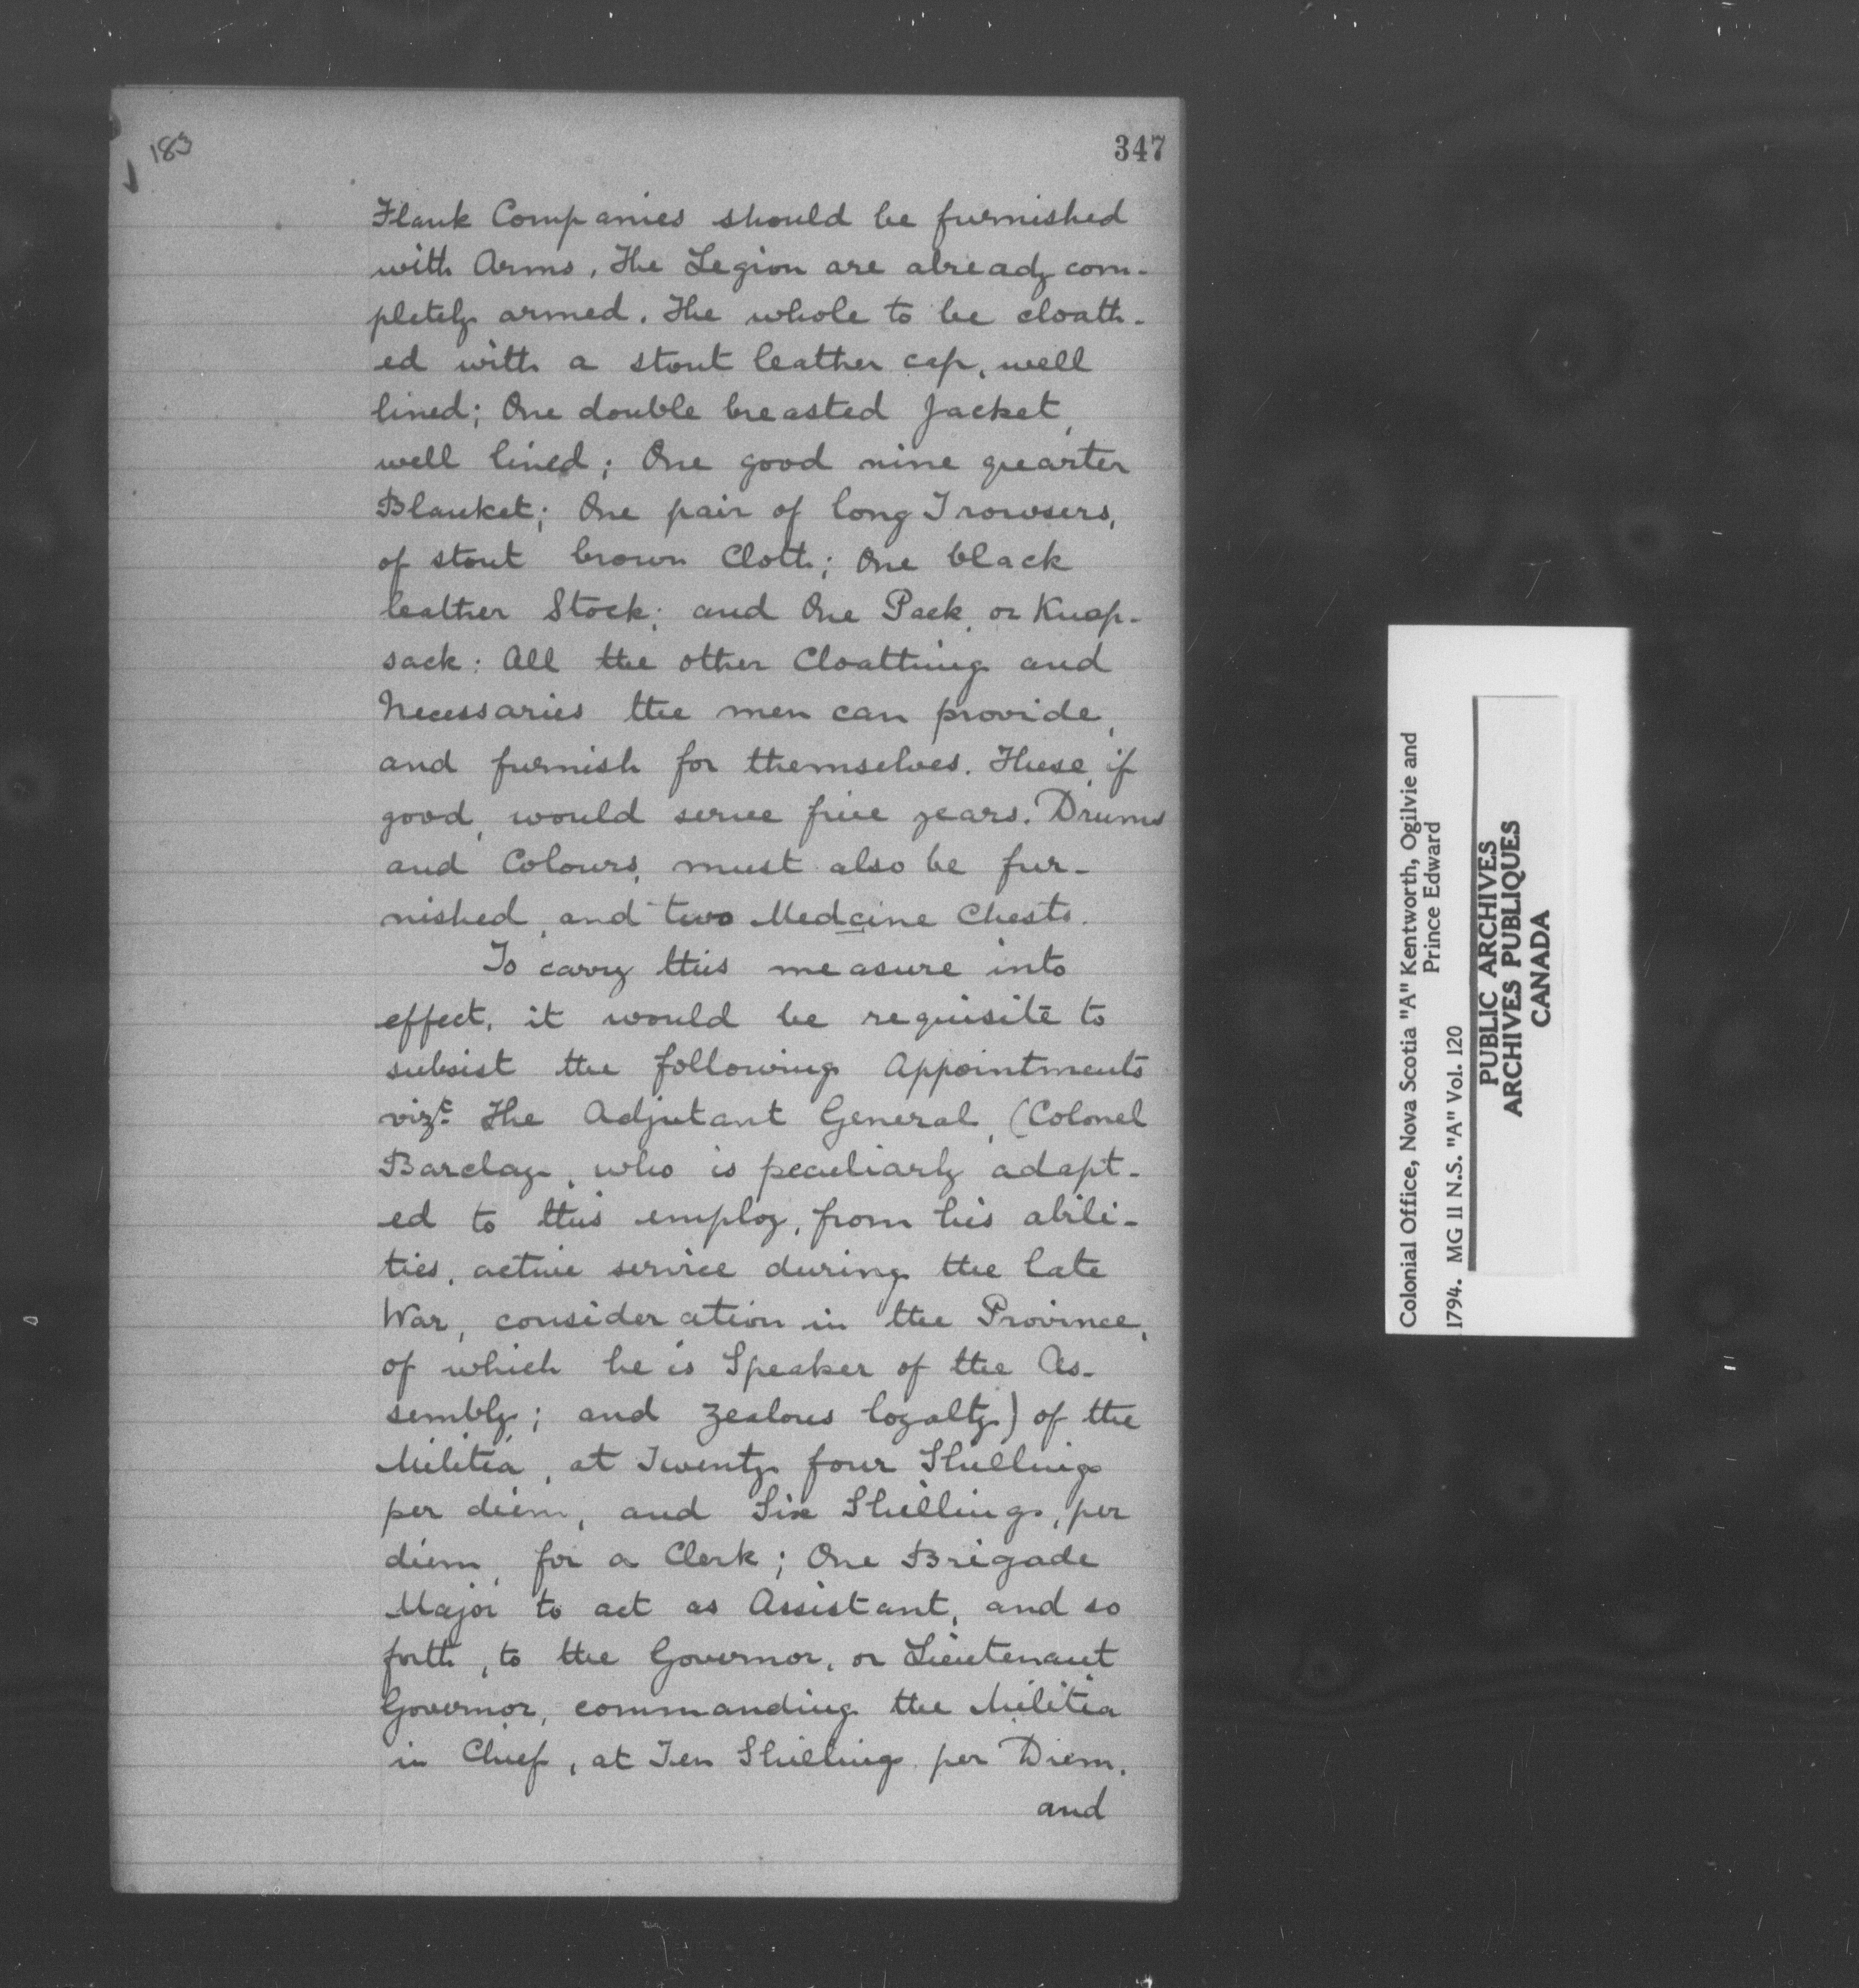 183
347
Flank Companies should be furnished
with Arms, The Legion are already com-
pletely armed. The whole to be cloath-
ed with a stout leather cap, well
lined; One double breasted Jacket,
well lined; One good nine quarter
Blanket; One pair of long Trowsers,
of stout brown Cloth; One black
leather Stock; and One Pack, or Knap-
sack: All the other Cloathing and
Necessaries the men can provide,
and furnish for themselves. These, if
good, would serve five years. Drums
and Colours, must also be fur-
nished, and two Medcine Chests.
To carry this measure into
effect, it would be requisite to
subsist the following Appointments
vizt. The Adjutant General, (Colonel
Barclay, who is peculiarly adapt-
ed to this employ, from his abili-
ties, active service during the late
War, consideration in the Province,
of which he is Speaker of the As-
sembly; and zealous loyalty) of the
Militia, at Twenty four Shillings
per diem, and Six Shillings, per
diem, for a Clerk; One Brigade
Major to act as Assistant, and so
forth, to the Governor, or Lieutenant
Governor, commanding the Militia
in Chief, at Ten Shillings per Diem,
and
Colonial Office, Nova Scotia "A" Kentworth, Ogilvie and
Prince Edward
1794. MG 11 N.S. "A" Vol. 120
PUBLIC ARCHIVES
ARCHIVES PUBLIQUES
CANADA